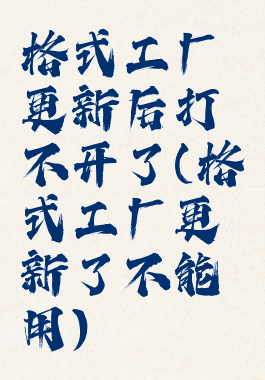 格式工厂
更新后打
不开了(格
式工厂更
新了不能
用)